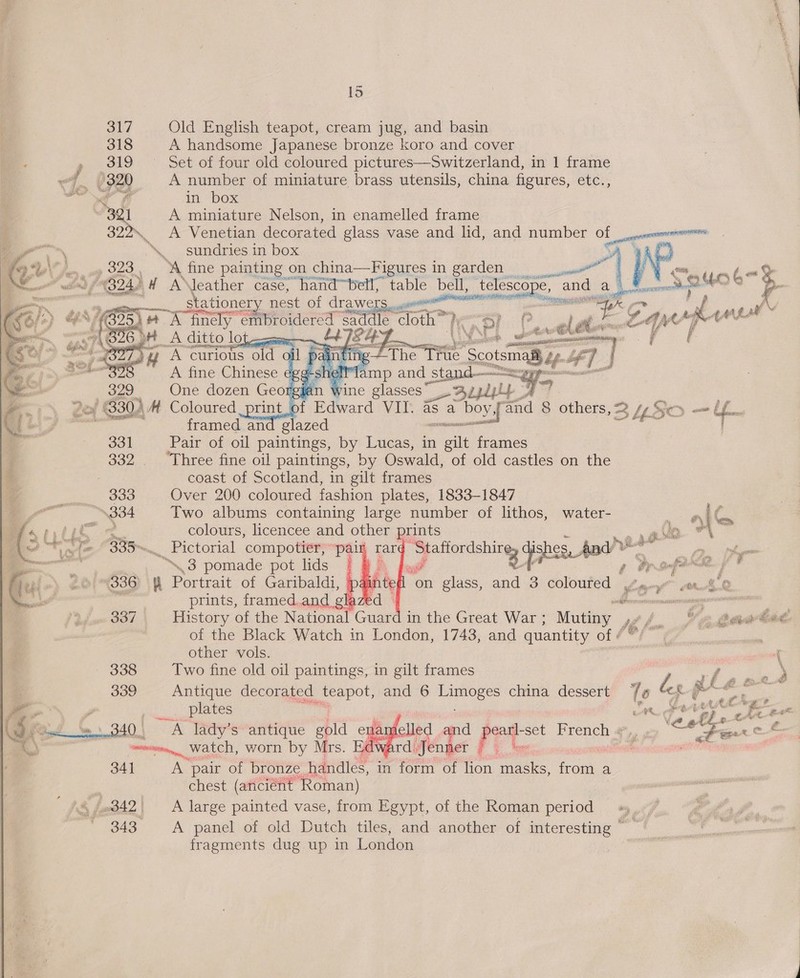 15
317 Old English teapot, cream jug, and basin
318 A handsome Japanese bronze koro and cover
319 Set of four old coloured pictures—Switzerland, in 1 frame
320 A number of miniature brass utensils, china figures, etc.,
in box
321 A miniature Nelson, in enamelled frame
322 A Venetian decorated glass vase and lid, and number of
sundries in box
323 A fine painting on china—Figures in garden
324 A leather case, hand bell, table bell, telescope, and a
stationery nest of drawers
325 A finely embroidered saddle cloth
326 A ditto lot
327 A curious old oil painting—The True Scotsman
328 A fine Chinese egg-shell lamp and stand
329 One dozen Georgian wine glasses
330 Coloured print of Edward VII. as a boy, and 8 others,
framed and glazed
331 Pair of oil paintings, by Lucas, in gilt frames
332 Three fine oil paintings, by Oswald, of old castles on the
coast of Scotland, in gilt frames
333 Over 200 coloured fashion plates, 1833-1847
334 Two albums containing large number of lithos, water-
colours, licencee and other prints
335 Pictorial compotier, pair rare Staffordshire dishes, and
3 pomade pot lids
336 Portrait of Garibaldi, painted on glass, and 3 coloured
prints, framed and glazed
337 History of the National Guard in the Great War; Mutiny
of the Black Watch in London, 1743, and quantity of
other vols.
338 Two fine old oil paintings, in gilt frames
339 Antique decorated teapot, and 6 Limoges china dessert
plates
340 A lady's antique gold enamelled and pearl-set French
watch, worn by Mrs. Edward Jenner
341 A pair of bronze handles, in form of lion masks, from a
chest (ancient Roman)
342 A large painted vase, from Egypt, of the Roman period
343 A panel of old Dutch tiles, and another of interesting
fragments dug up in London